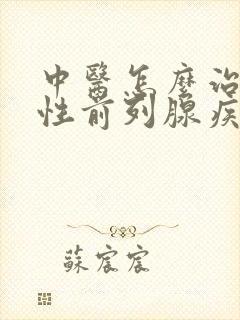 中醫怎麼治
性前列腺疾
蘇宸宸